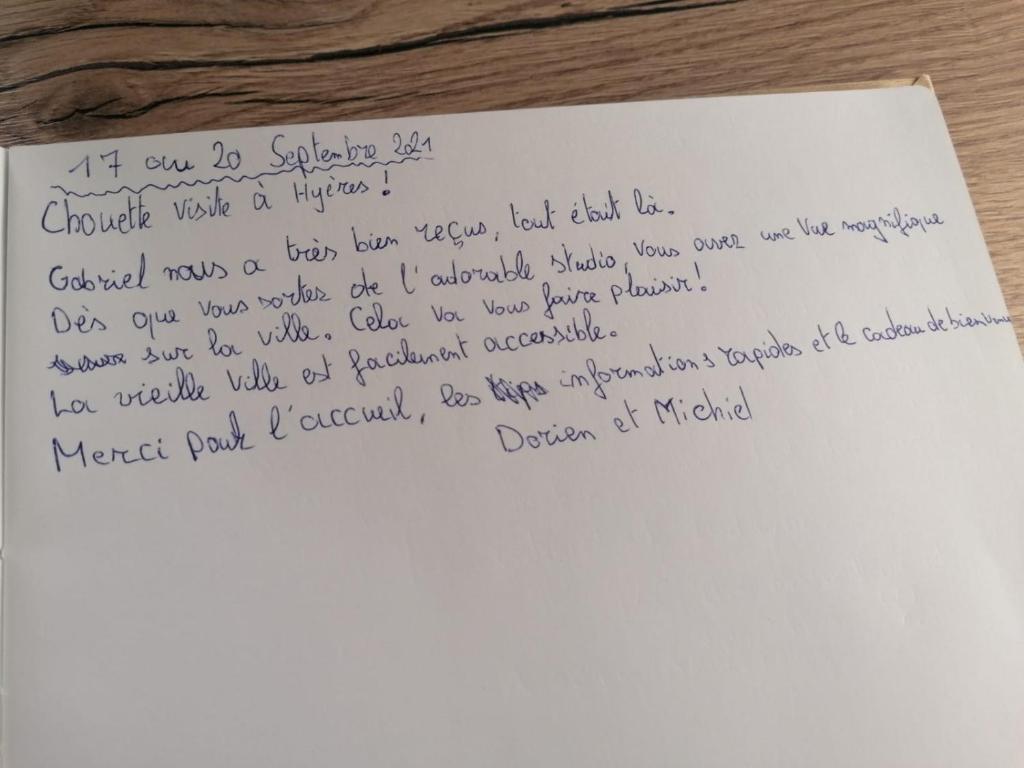 17 au 20 Septembre 2021
Chouette visite à Hyères !
Gabriel nous a très bien reçus, tout était là.
Dès que vous sortez de l'adorable studio, vous avez une vue magnifique
sur la ville. Cela va vous faire plaisir !
La vieille ville est facilement accessible.
Merci pour l'accueil, les informations rapides et le cadeau de bienvenue
Dorien et Michiel